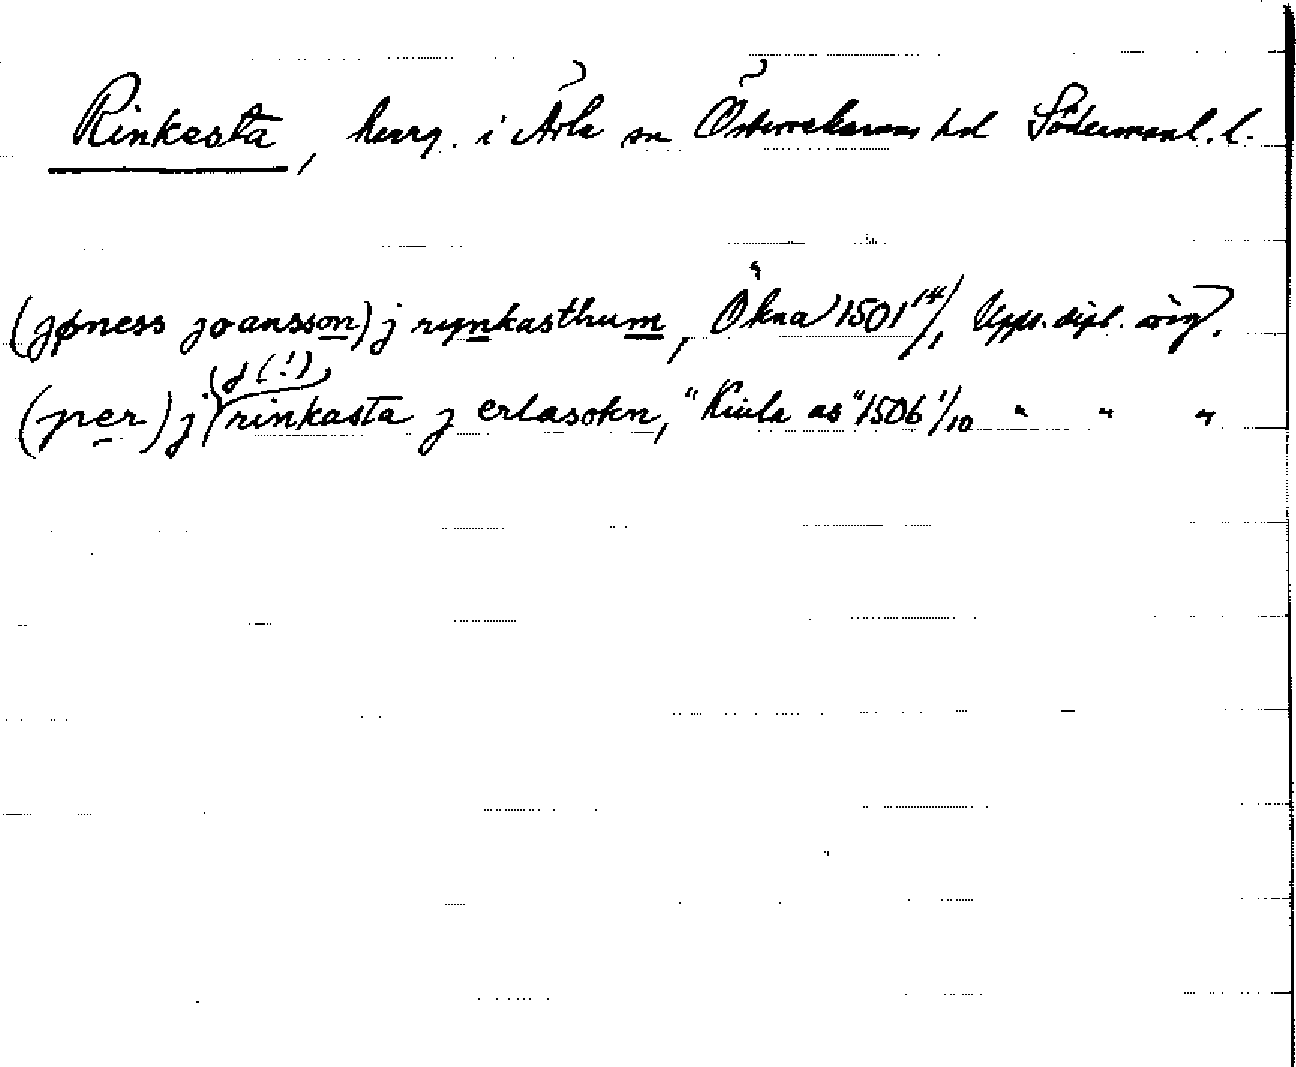 Rinkesta, herrg. i Ärla sn Österrekarne hd Södermanl. l.
(jøness joansson) j rynkasthum, Ökna 1501 14/1 Upps. dipl. orig.
j (!)
(per) j rinkasta j erlasokn, "Kiula as" 1506 1/10 " " "